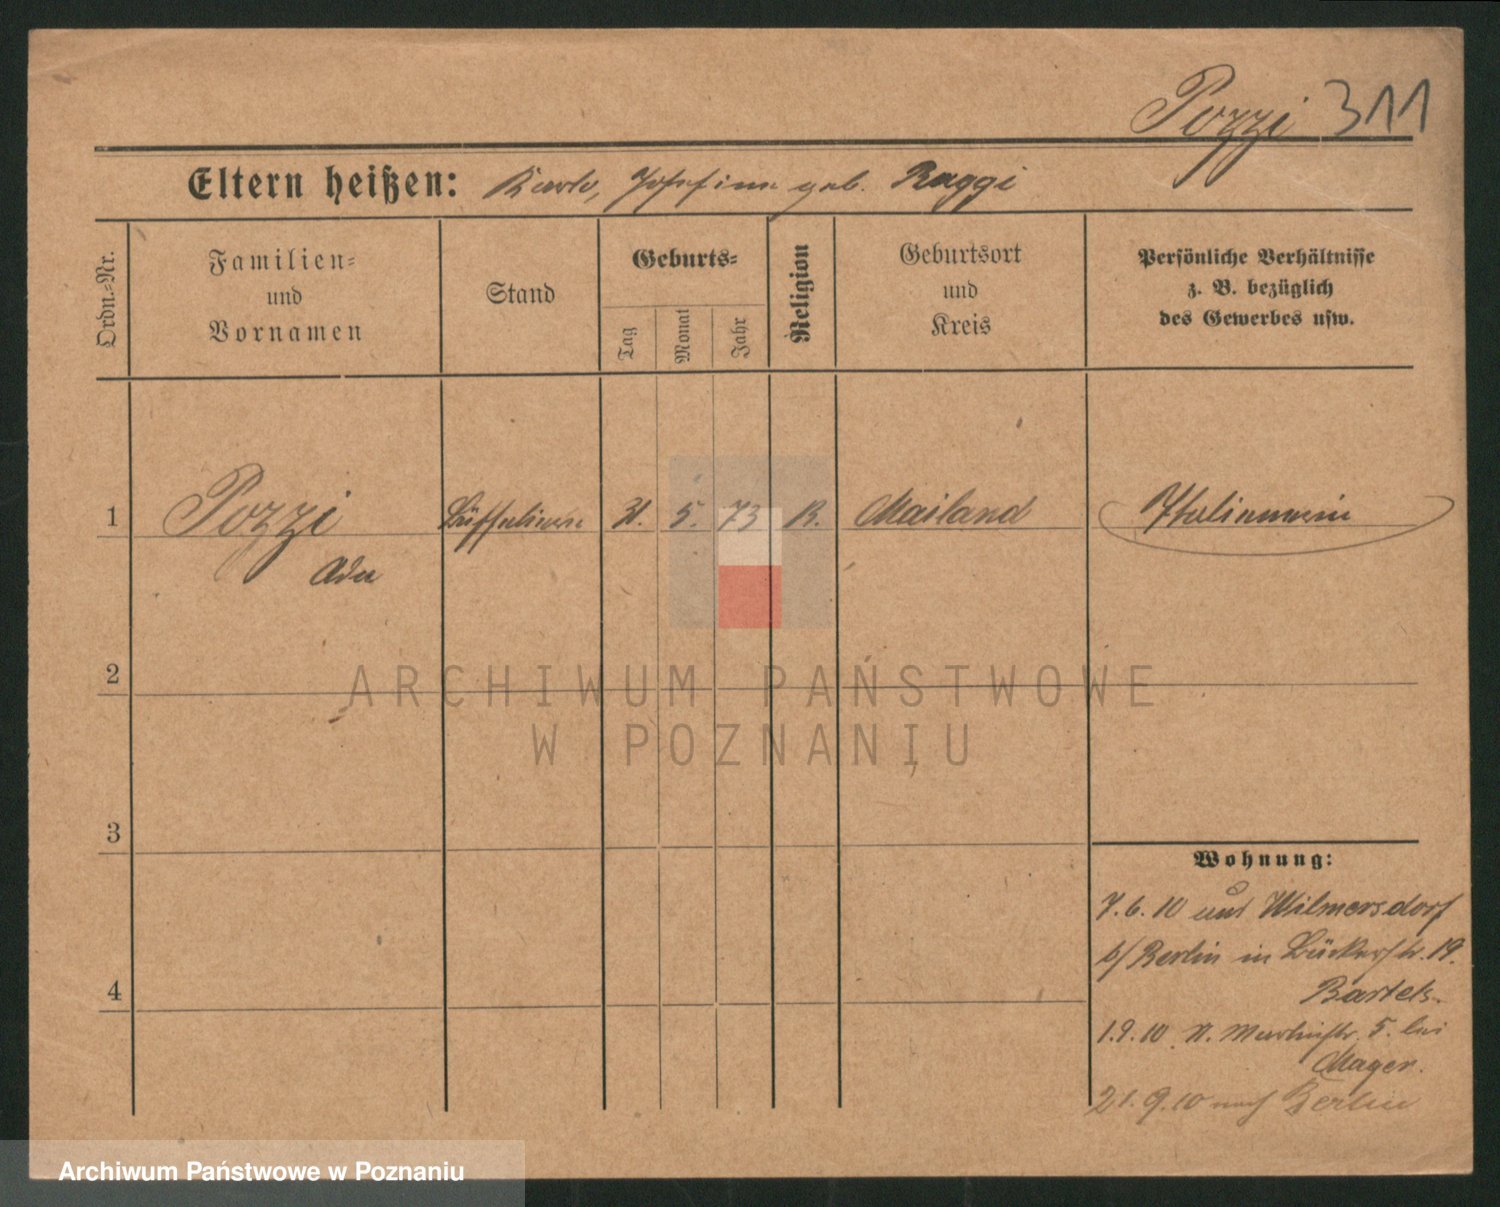 Pozzi 311
Eltern heißen: Karlo, Josefine geb. Raggi
Ordn.-Nr.
Familien-
und
Vornamen
Stand
Geburts-
Tag
Monat
Jahr
Religion
Geburtsort
und
Kreis
Persönliche Verhältnisse
z. B. bezüglich
des Gewerbes usw.
1 Pozzi 31. 5. 73 K. Mailand Italienerin
Ada
2
ARCHIWUM PAŃSTWOWE
W POZNANIU
3
4
Wohnung:
7.6.10 aus Wilmersdorf
b/ Berlin in 19.
Bartels.
1.9.10 N. Martinstr. 5. bei
Mager.
21.9.10 nach Berlin
Archiwum Państwowe w Poznaniu